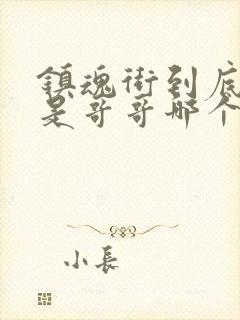 鎮魂街到底
是哥哥那个
小長